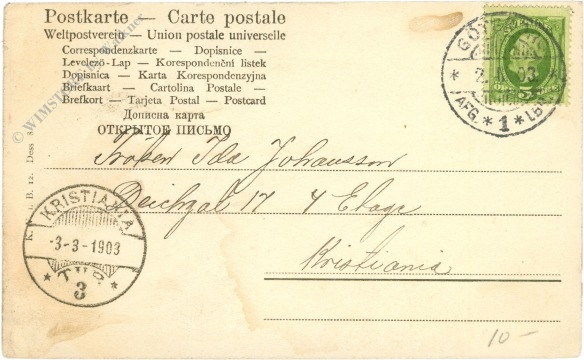 Postkarte — Carte postale
Weltpostverein — Union postale universelle
Correspondenzkarte — Dopisnice —
Levelező-Lap — Korespondenčni listek
Dopisnica — Karta Korespondenzyjna
Briefkaart — Cartolina Postale —
Brefkort — Tarjeta Postal — Postcard
Дописна карта
ОТКРЫТОЕ ПИСЬМО
Fröken Ida Johansson
Deichgal 17 4 Etage
Kristiania
KRISTIANIA
-3-3-1903
TUR
3
03
AFG. * 1 * LBR
10-